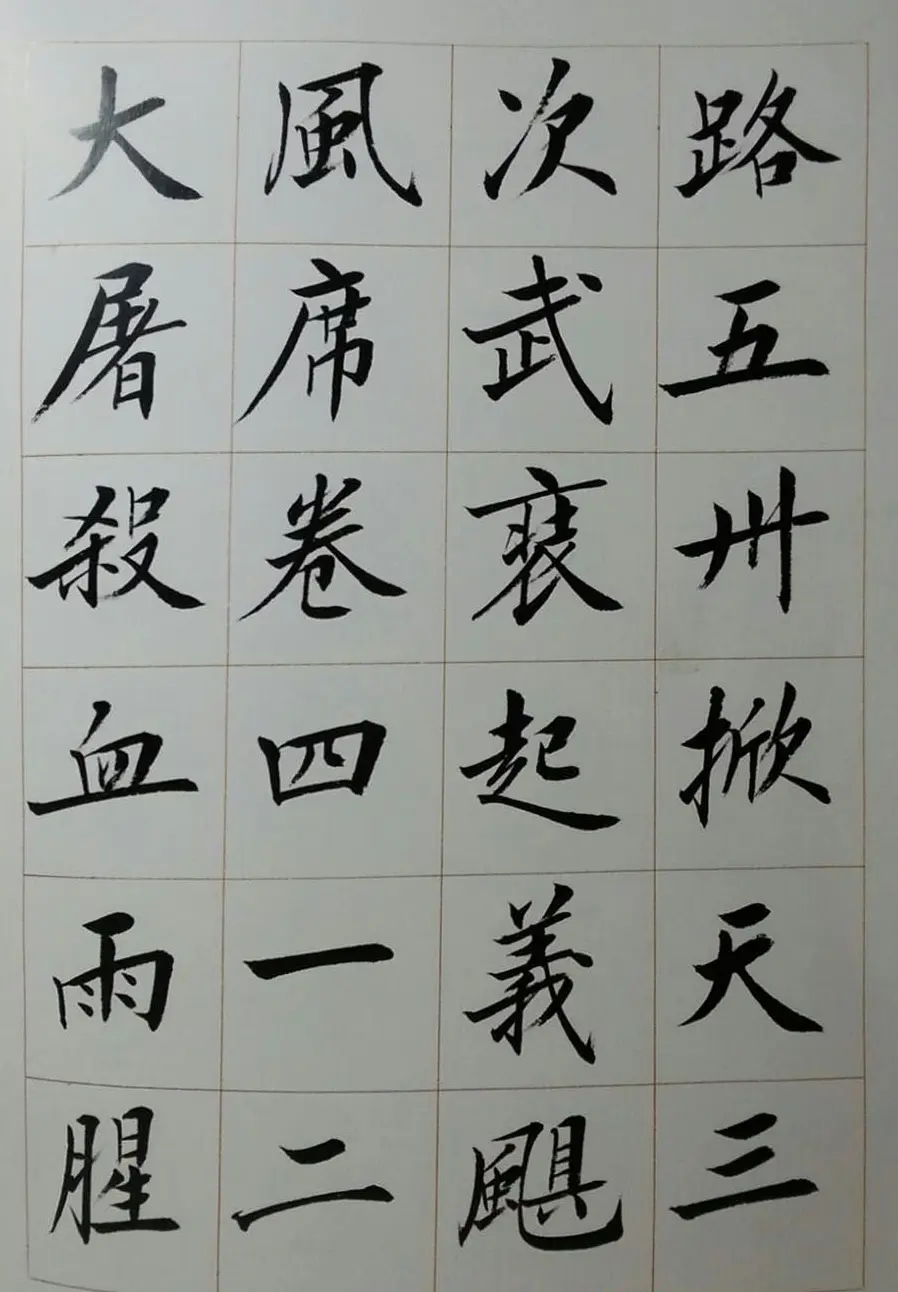 路五卅掀天三
次武裝起義颶
風席卷四一二
大屠殺血雨腥